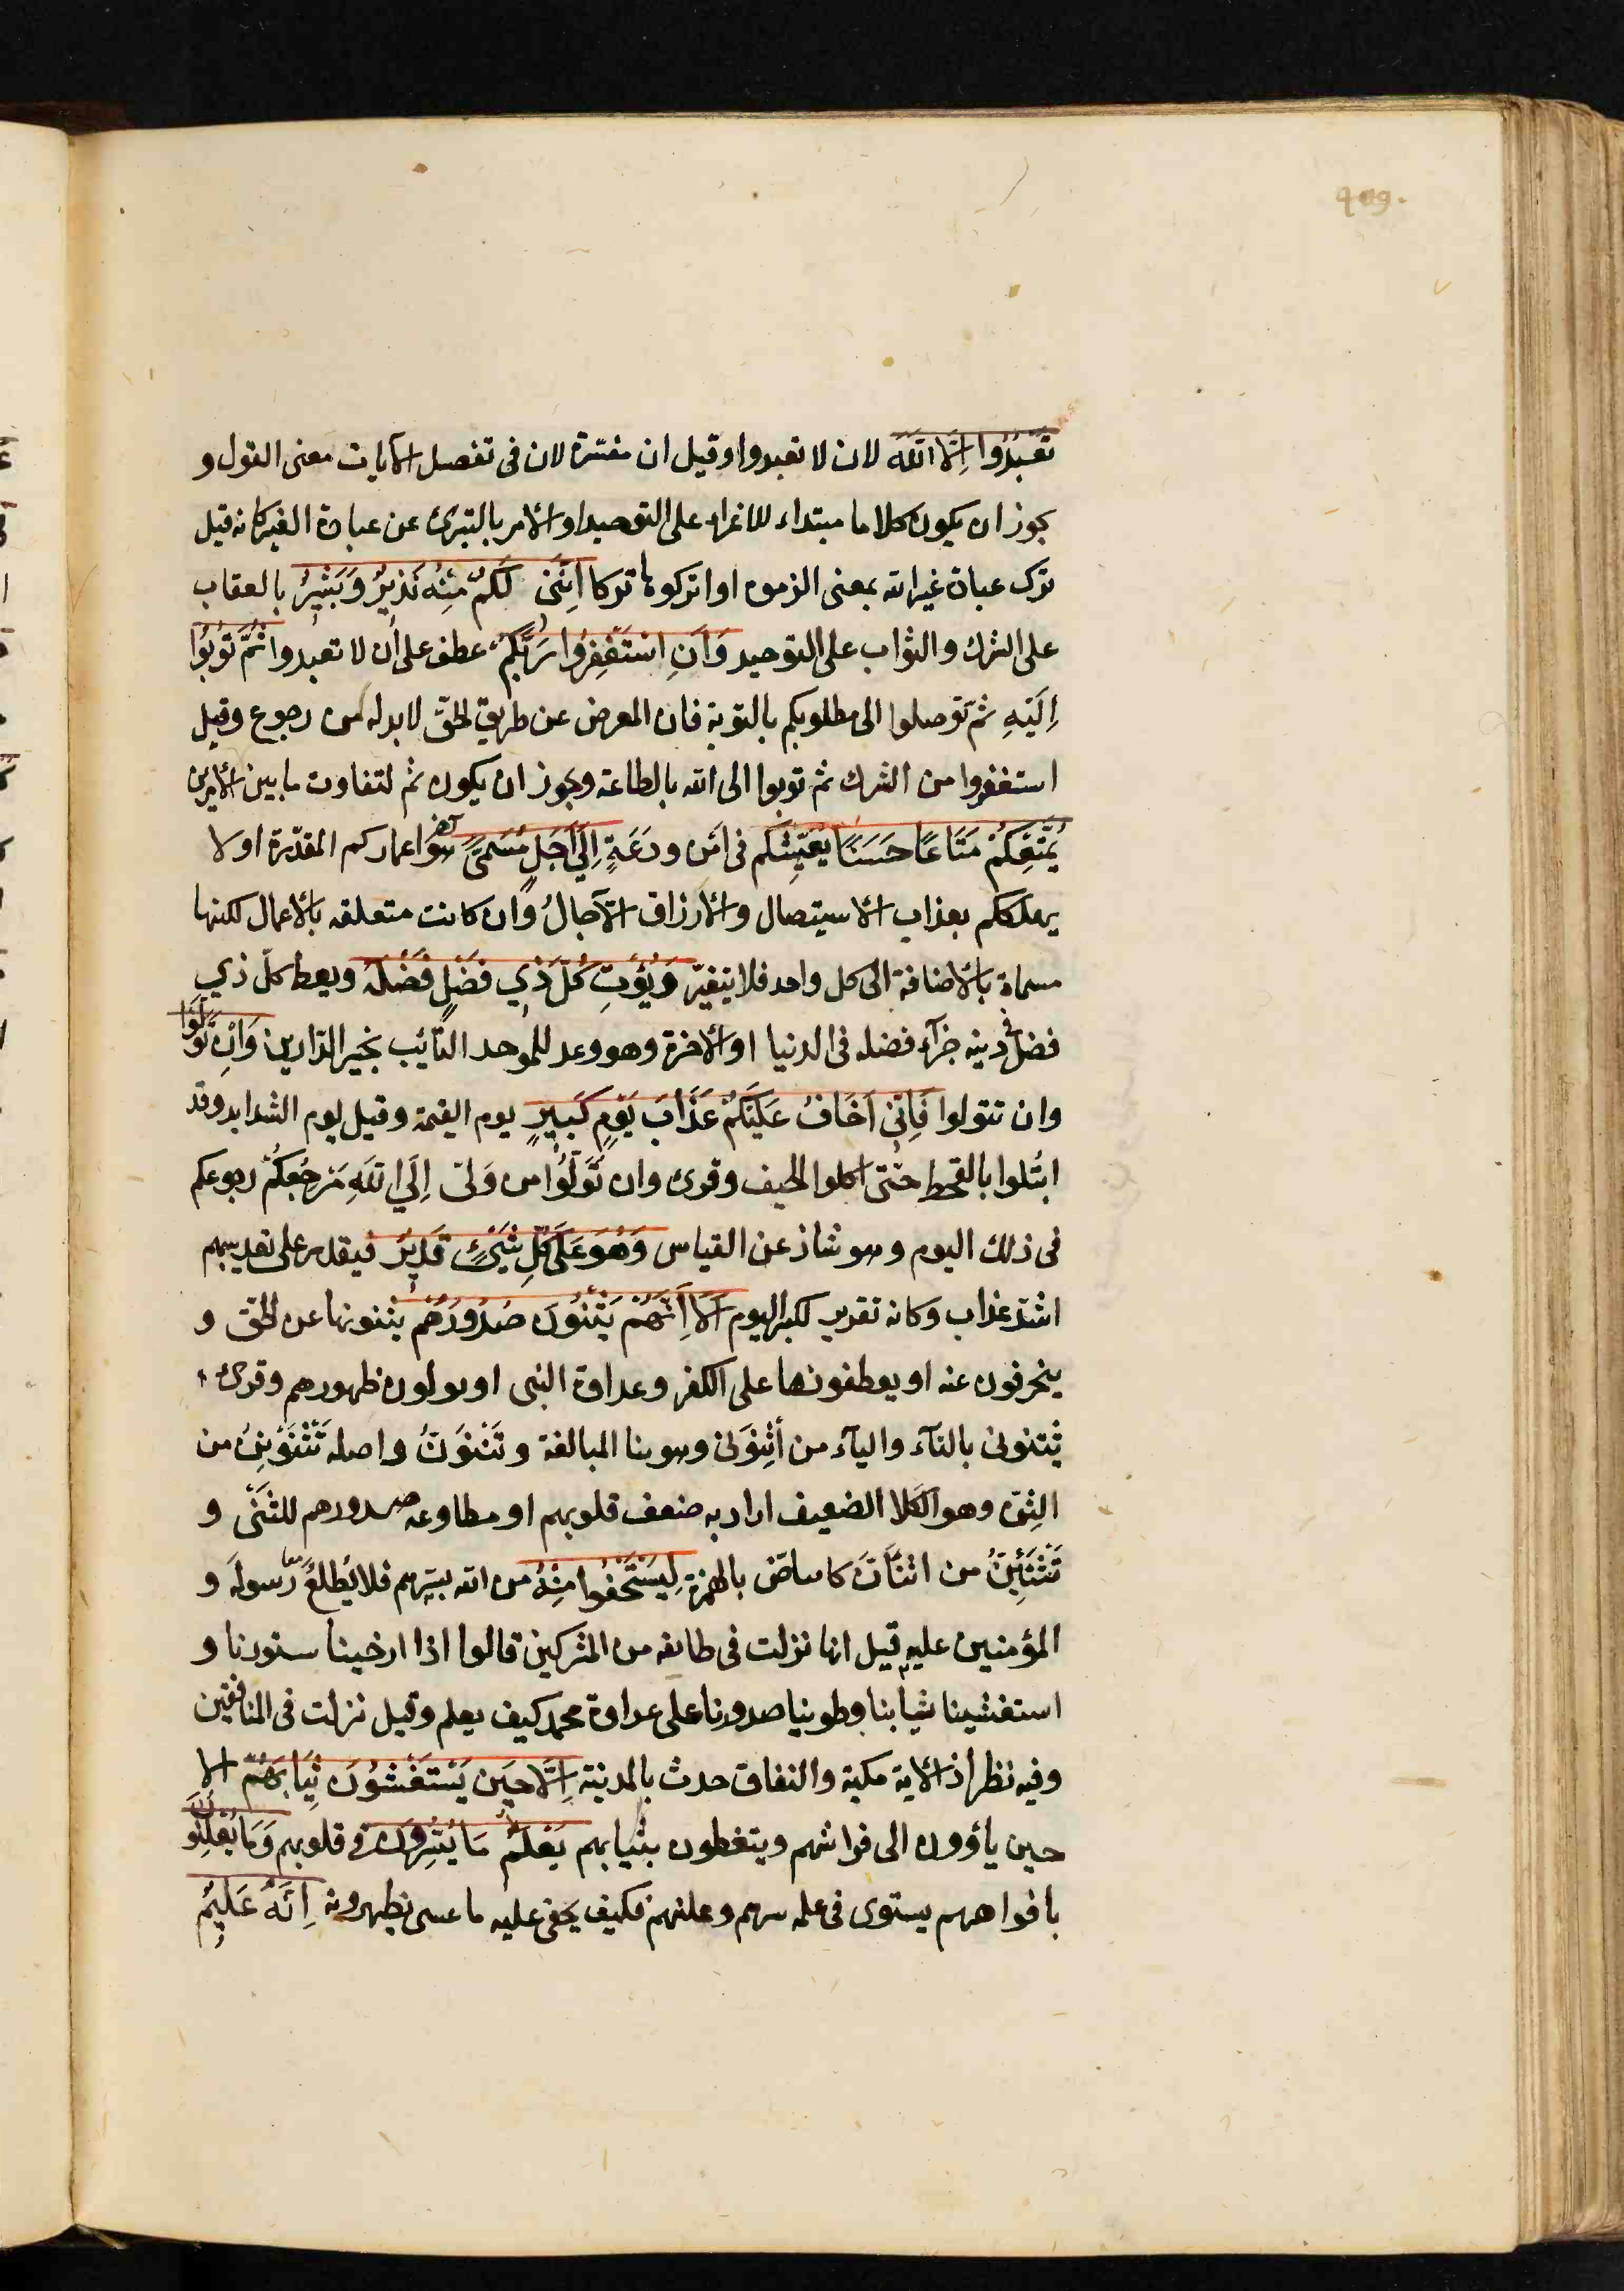 تَعْبُدُوا اِلَّا اللّٰهَ لان لا تعبدوا وقيل ان مفسّرة لان فى تفصيل الآيات معنى القول و
يجوز ان يكون كلاما مبتداء للاغراء على التوحيد او الامر بالتبرى عن عبادة الغير كانه قيل
ترك عبادة غير الله بمعنى الزموه او اتركوها تركا اِنَّنى لَكُمْ مِنْهُ نَذيرٌ وَبَشيرٌ بالعقاب
على الشرك والثواب على التوحيد وَاَنِ اسْتَغْفِرُوا رَبَّكُمْ عطف على ان لا تعبدوا ثُمَّ تُوبُوا
اِلَيْهِ ثم توصلوا الى مطلوبكم بالتوبة فان المعرض عن طريق الحقّ لا بد له من رجوع وقيل
استغفروا من الشرك ثم توبوا الى الله بالطاعة ويجوز ان يكون ثم لتفاوت ما بين الامرين
يُمَتِّعْكُمْ مَتَاعًا حَسَنًا يُعَيِّشكم فى اَمْن ودَعَةٍ اِلَى اَجَلٍ مُسَمًّى هو آخر اعماركم المقدّرة او لا
يهلككم بعذاب الاستيصال والارزاق والآجالُ وان كانت متعلقه بالاعمال لكنها
مسماة بالاضافة الى كل واحد فلا يتغيّر وَيُؤْتِ كُلَّ ذي فَضْلٍ فَضْلَهُ ويعط كلّ ذي
فضل فى دينه جزآء فضله فى الدنيا او الآخرة وهو وعد للموحد التائب بخير الدّارين وَاِنْ تَوَلَّوْا
وان تتولوا فَاِنّى اَخَافُ عَلَيْكُمْ عَذَابَ يَوْمٍ كَبيرٍ يوم القيمة وقيل يوم الشدايد وقد
ابتُلوا بالقحط حتى اكلوا الجيف وقرى وان تُوَلُّوا من وَلّى اِلَى اللّٰهِ مَرْجِعُكُمْ رجوعكم
فى ذلك اليوم وهو شاذ عن القياس وَهُوَ عَلَى كُلِّ شَيْءٍ قَديرٌ فيقدر على تعذيبهم
اشدّ عذاب وكانه تقرير لكبر اليوم اَلَا اِنَّهُمْ يَثْنُونَ صُدُورَهُمْ يثنونها عن الحقّ و
ينحرفون عنه او يعطفونها على الكفر وعداوة النبى او يولون ظهورهم وقرى
يَثْنَونى بالتآء واليآء من اثْنَونَى وهو بنا المبالغة وتَثْنَوِنُّ واصله تَثْنَوْنِنُ من
الثِنّ وهو الكلا الضعيف اراد به ضعف قلوبهم او مطاوعه صدورهم للثَنْى و
تَثْنَئِنُّ من اثنَأنَّ كابياضّ بالهمزة لِيَسْتَخْفُوا مِنْهُ من الله بسرّهم فلا يُطْلعُ رسوله و
المؤمنين عليه قيل انها نزلت فى طايفه من المشركين قالوا اذا ارخينا ستورنا و
استغشينا ثيابنا وطوينا صدورنا على عداوة محمد كيف يعلم وقيل نزلت فى المنافقين
وفيه نظر اذ الاية مكية والنفاق حدث بالمدينة اَلَا حينَ يَسْتَغْشُونَ ثِيَابَهُمْ الا
حين يأوون الى فراشهم ويتغطون بثيابهم يَعْلَمُ مَا يُسِرُّونَ فى قلوبهم وَمَا يُعْلِنُونَ
بافواههم يستوى فى علمه سرهم وعلنهم فكيف يخفى عليه ما عسى يظهرونه اِنَّهُ عَليمٌ